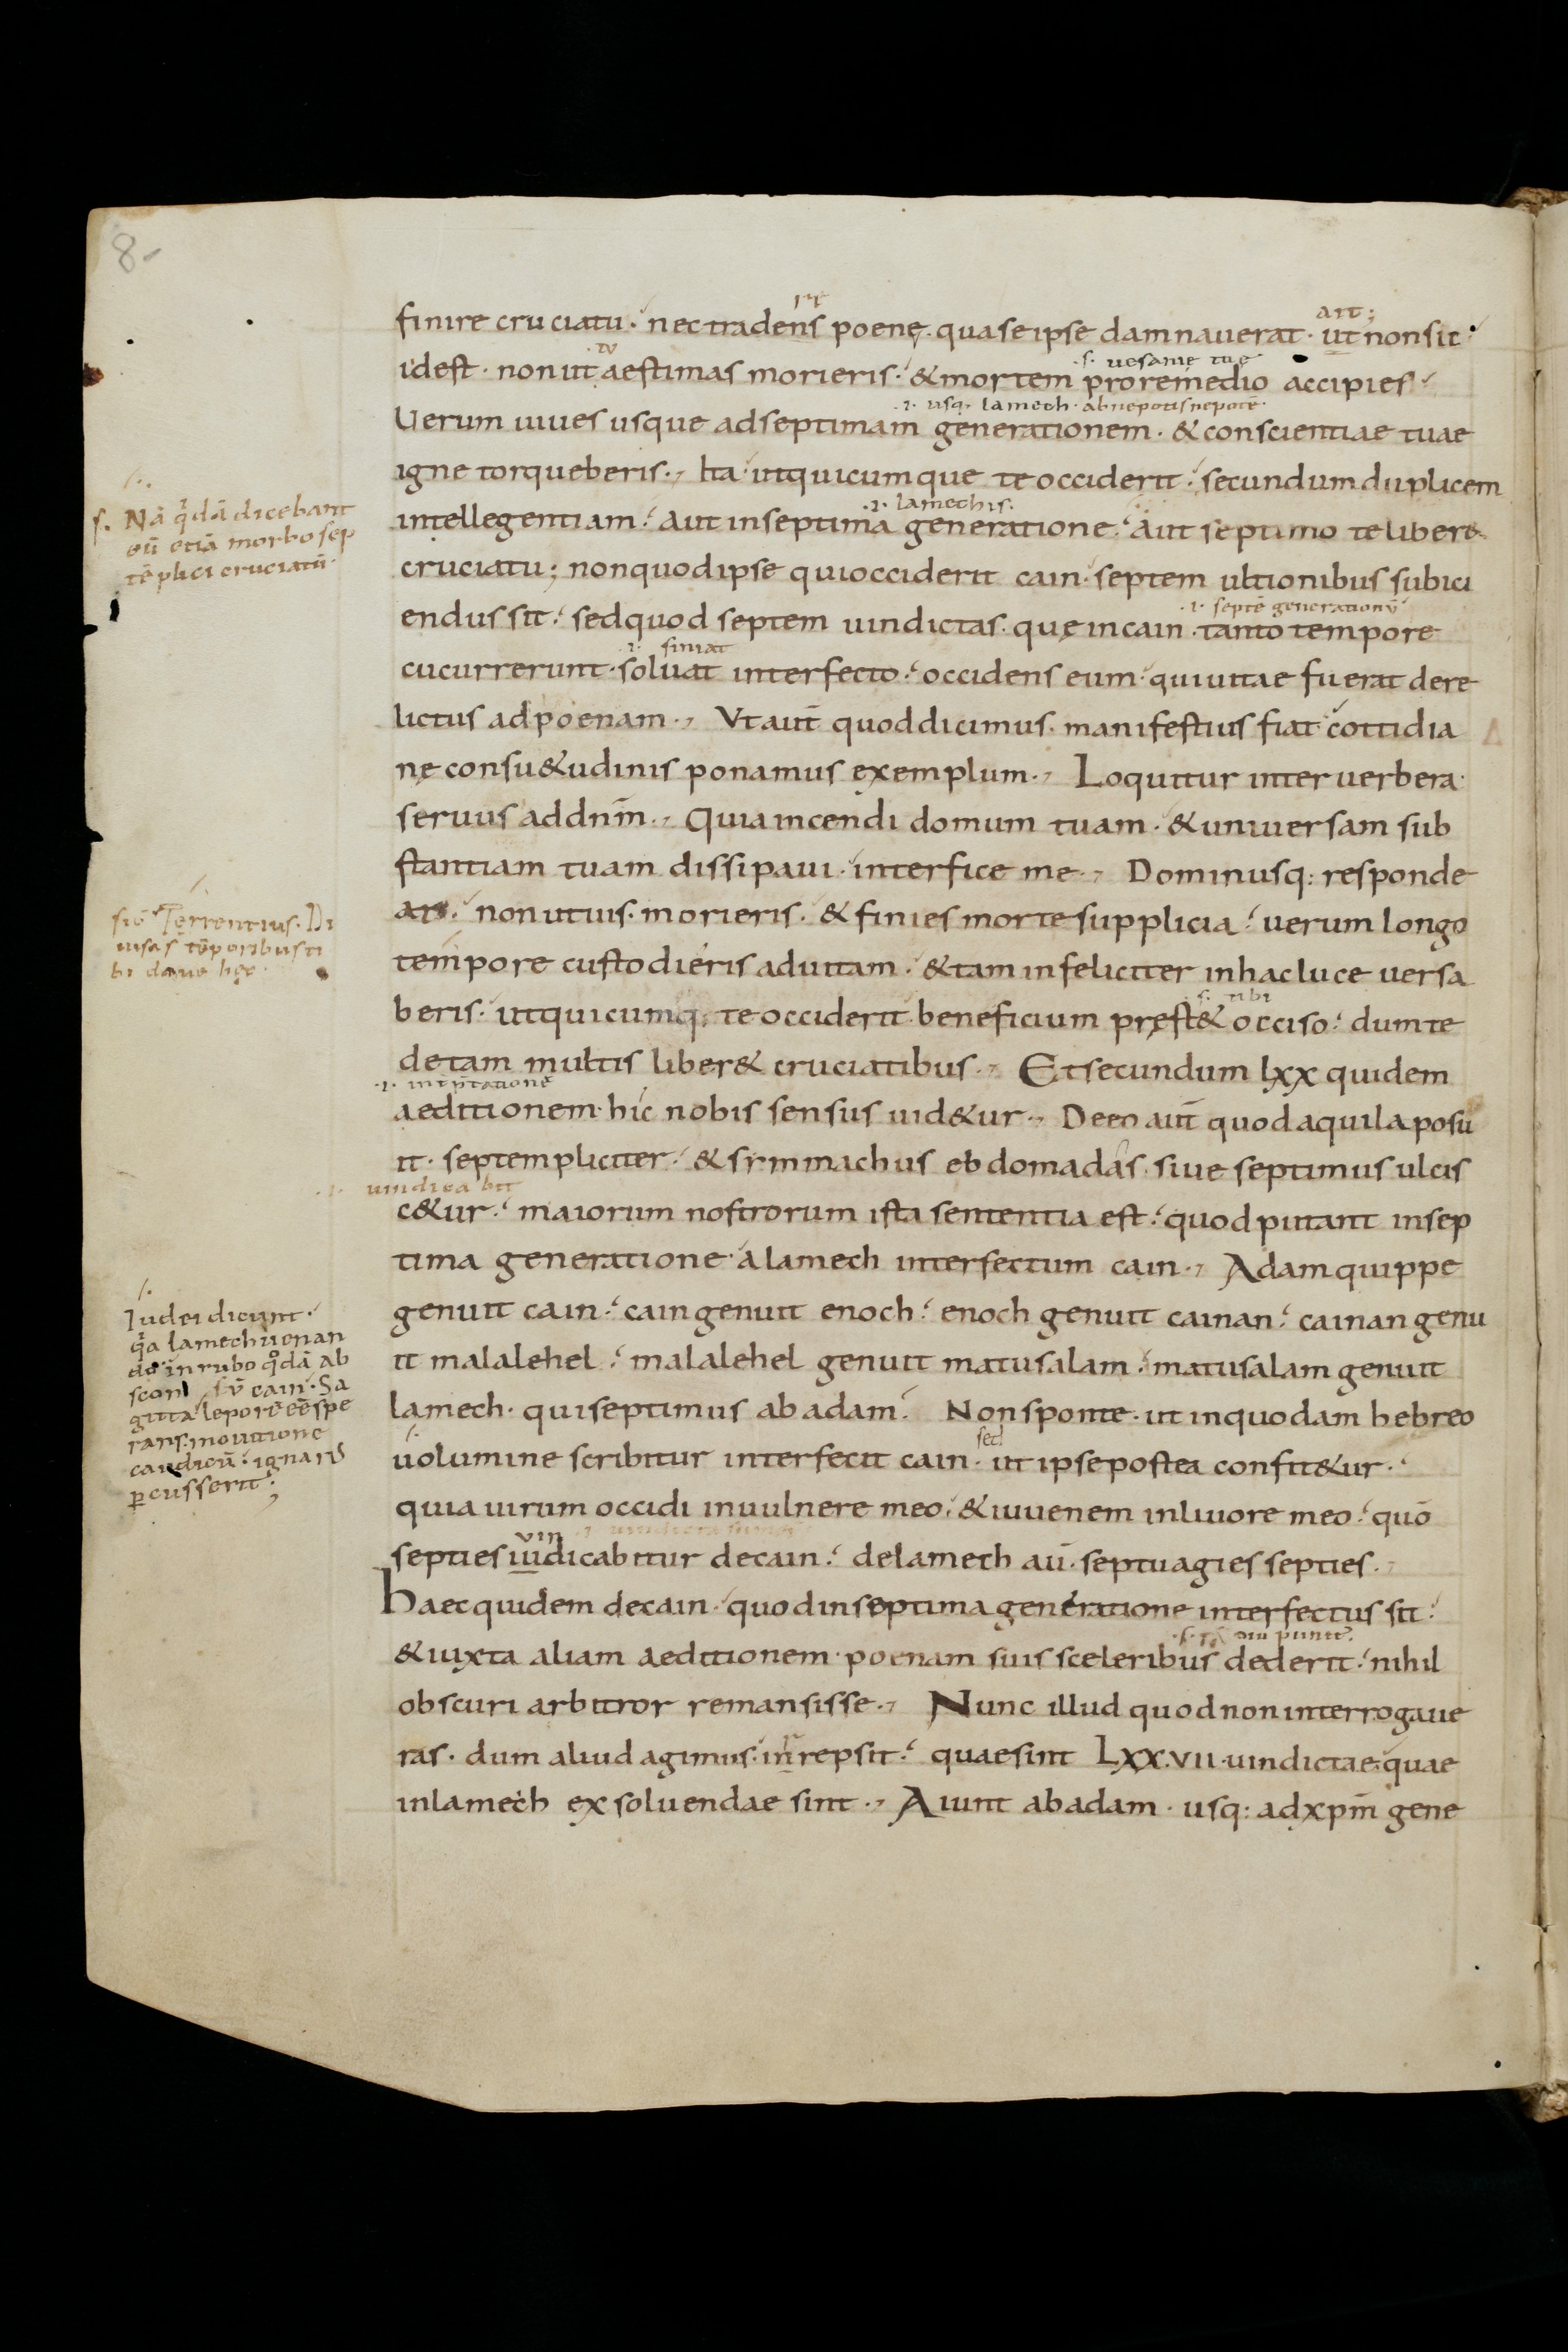 8-
finire cruciatu· nec tradens poenę· qua se ipse damnauerat· ut non sit
ait;
idest· non ut aestimas morieris· & mortem pro remedio accipies·
tu
·s· uesanię tuę
Uerum uiues usque ad septimam generationem· & conscientiae tuae
·i· usq; lamech· abnepotis nepotē·
igne torqueberis· Ita ut quicumque te occiderit· secundum duplicem
intellegentiam· aut in septima generatione· aut septimo te liber&
·i· lamechis·
cruciatu; non quod ipse qui occiderit cain· septem ultionibus subici
endus sit· sed quod septem uindictas· quę in cain· tanto tempore
·i· septē generationū
cucurrerunt· soluat interfecto· occidens eum· qui uitae fuerat dere
·i· finiat
lictus ad poenam· Vt aut̄ quod dicimus· manifestius fiat cottidia
nę consu&udinis ponamus exemplum· Loquitur inter uerbera·
seruus ad dnm̄· Quia incendi domum tuam· & uniuersam sub
stantiam tuam dissipaui· interfice me· Dominusq: responde
at· non ut uis· morieris· & finies morte supplicia· uerum longo
tempore custodieris ad uitam· & tam infeliciter in hac luce uersa
beris· ut quicumq; te occiderit beneficium pręst& occiso· dum te
s· tibi
de tam multis liber& cruciatibus· Et secundum lxx quidem
aeditionem· hic nobis sensus uid&ur· Deeo aut̄ quod aquila posu
·i· int̄p̄tationē
it· septempliciter· & symmachus ebdomadas· siue septimus ulcis
c&ur· maiorum nostrorum ista sententia est· quod putant in sep
·i· uindicabit
tima generatione· a lamech interfectum cain· Adam quippe
genuit cain· cain genuit enoch· enoch genuit cainan· cainan genu
it malalehel· malalehel genuit matusalam· matusalam genuit
lamech· qui septimus ab adam· Non sponte· ut in quodam hebreo
uolumine scribitur interfecit cain· ut ipse postea confit&ur·
sed
quia uirum occidi in uulnere meo· & iuuenem in liuore meo· quō
septies iudicabitur de cain· de lamech aū· septuagies septies·
vin
Haec quidem de cain· quod in septima generatione interfectus sit·
& iuxta aliam aeditionem· poenam suis sceleribus dederit· nihil
obscuri arbitror remansisse· Nunc illud quod non interrogaue
ras· dum aliud agimus· inrepsit· quae sint Lxx·vii·uindictae· quae
in lamech exsoluendae sint· Aiunt ab adam· usq: ad xpm̄ gene
s· Nā q̄dā dicebant
eū etiā morbo sep
tēplici cruciatū·
sic̄ Terrentius· Di
uisas tēporibus ti
bi daue hęc·
Iudei dicunt·
q̄a lamech uenan
do in rubo q°dā ab
scon
cain· Sa
gitta leporē eē spe
rans· motione
caudicū· ignarꝰ
ꝑcusserit;